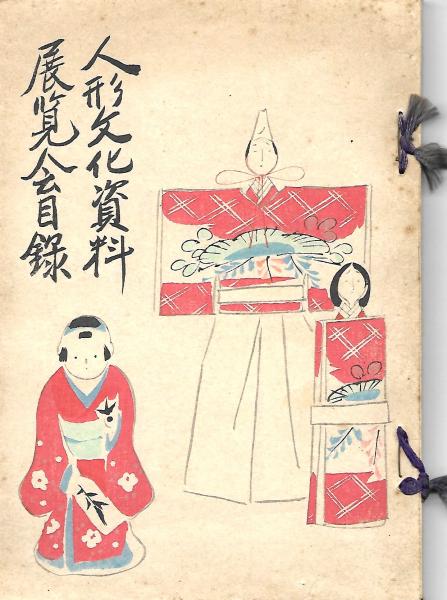 人形文化資料
展覧会目録